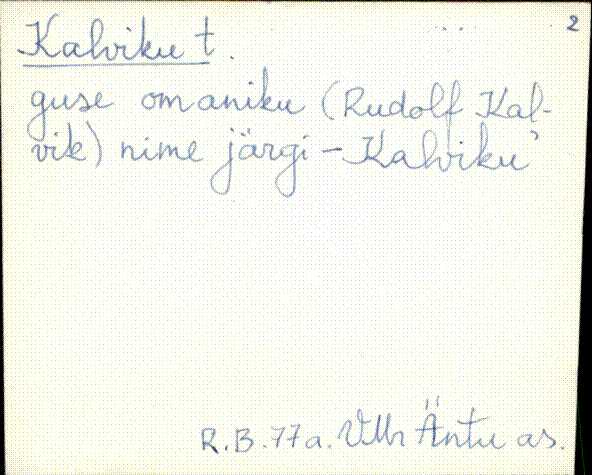 2
Kalviku t.
guse omaniku (Rudolf Kal-
vik) nime järgi - Kalviku'
R.B. 77a. VMr Äntu as.